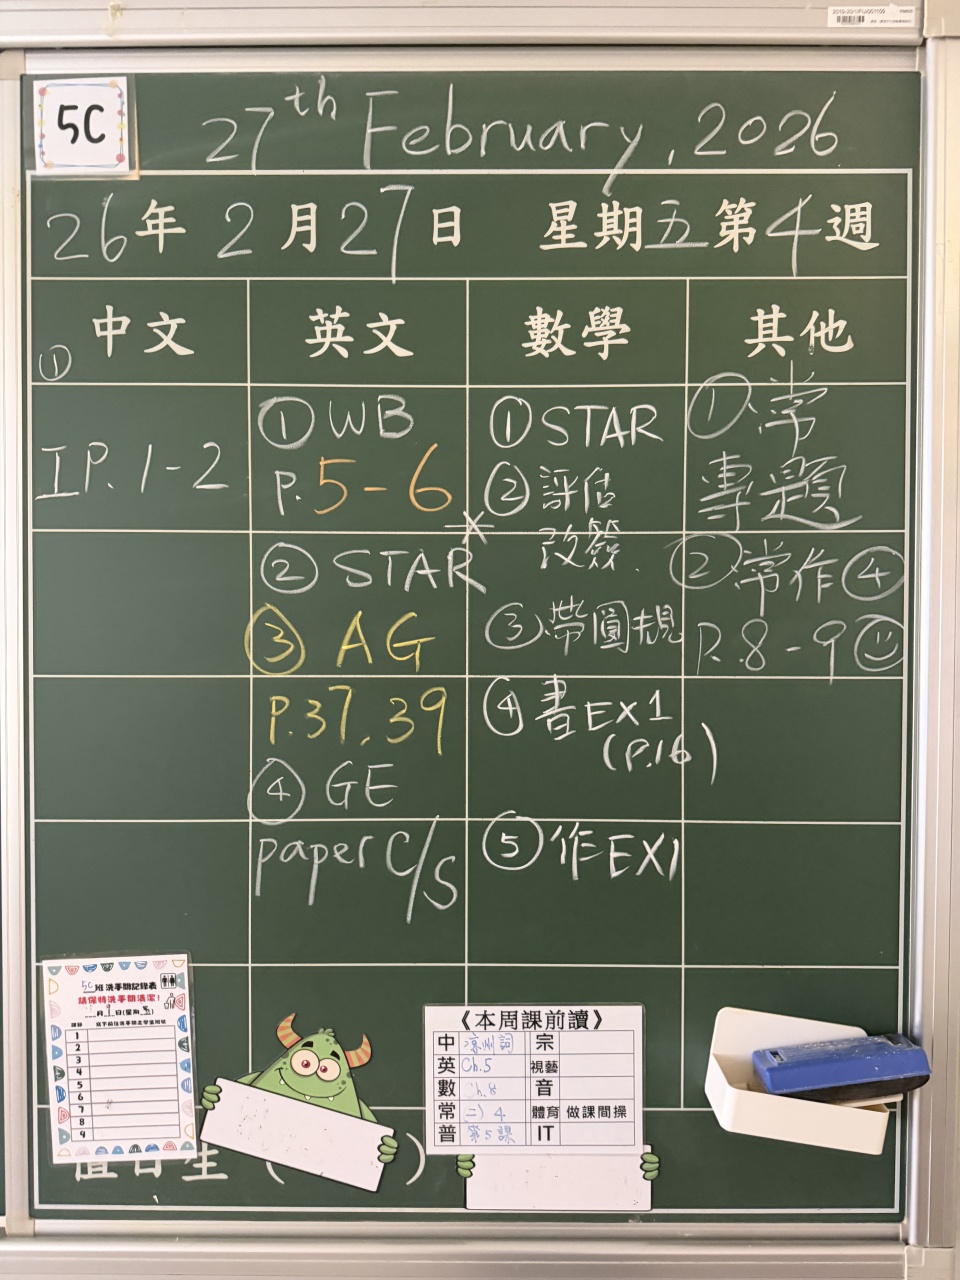 5C
27th February, 2026
26年2月27日 星期五第4週
中文 英文 數學 其他
①
IP.1-2
①WB
P.5-6
②STAR
③AG
P.37,39
④GE
paper C/S
①STAR
②評估
改簽.
③帶圓規
④書EX1
(P.16)
⑤作EX1
①常
專題
②常作④
P.8-9
5C班洗手間記錄表
請保持洗手間清潔!
1
2
3
4
5
6
7
8
9
《本周課前讀》
中 涼州詞 宗
英 Ch.5 視藝
數 Ch.8 音
常 二)4 體育 做課間操
普 第5課 IT
值日生( )